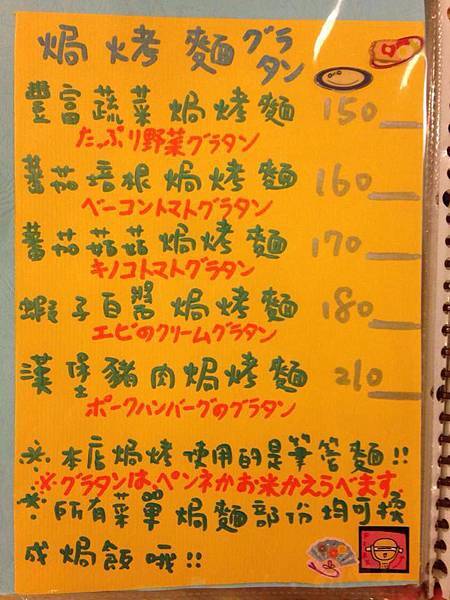 焗烤麵グラタン
豐富蔬菜焗烤麵 150
たっぷり野菜グラタン
蕃茄培根焗烤麵 160
ベーコントマトグラタン
蕃茄菇菇焗烤麵 170
キノコトマトグラタン
蝦子白醬焗烤麵 180
エビのクリームグラタン
漢堡豬肉焗烤麵 210
ポークハンバーグのグラタン
※本店焗烤使用的是筆管麵!!
※グラタンは、ペンネかお米かえらべます
※所有菜單焗麵部份均可換
成焗飯哦!!